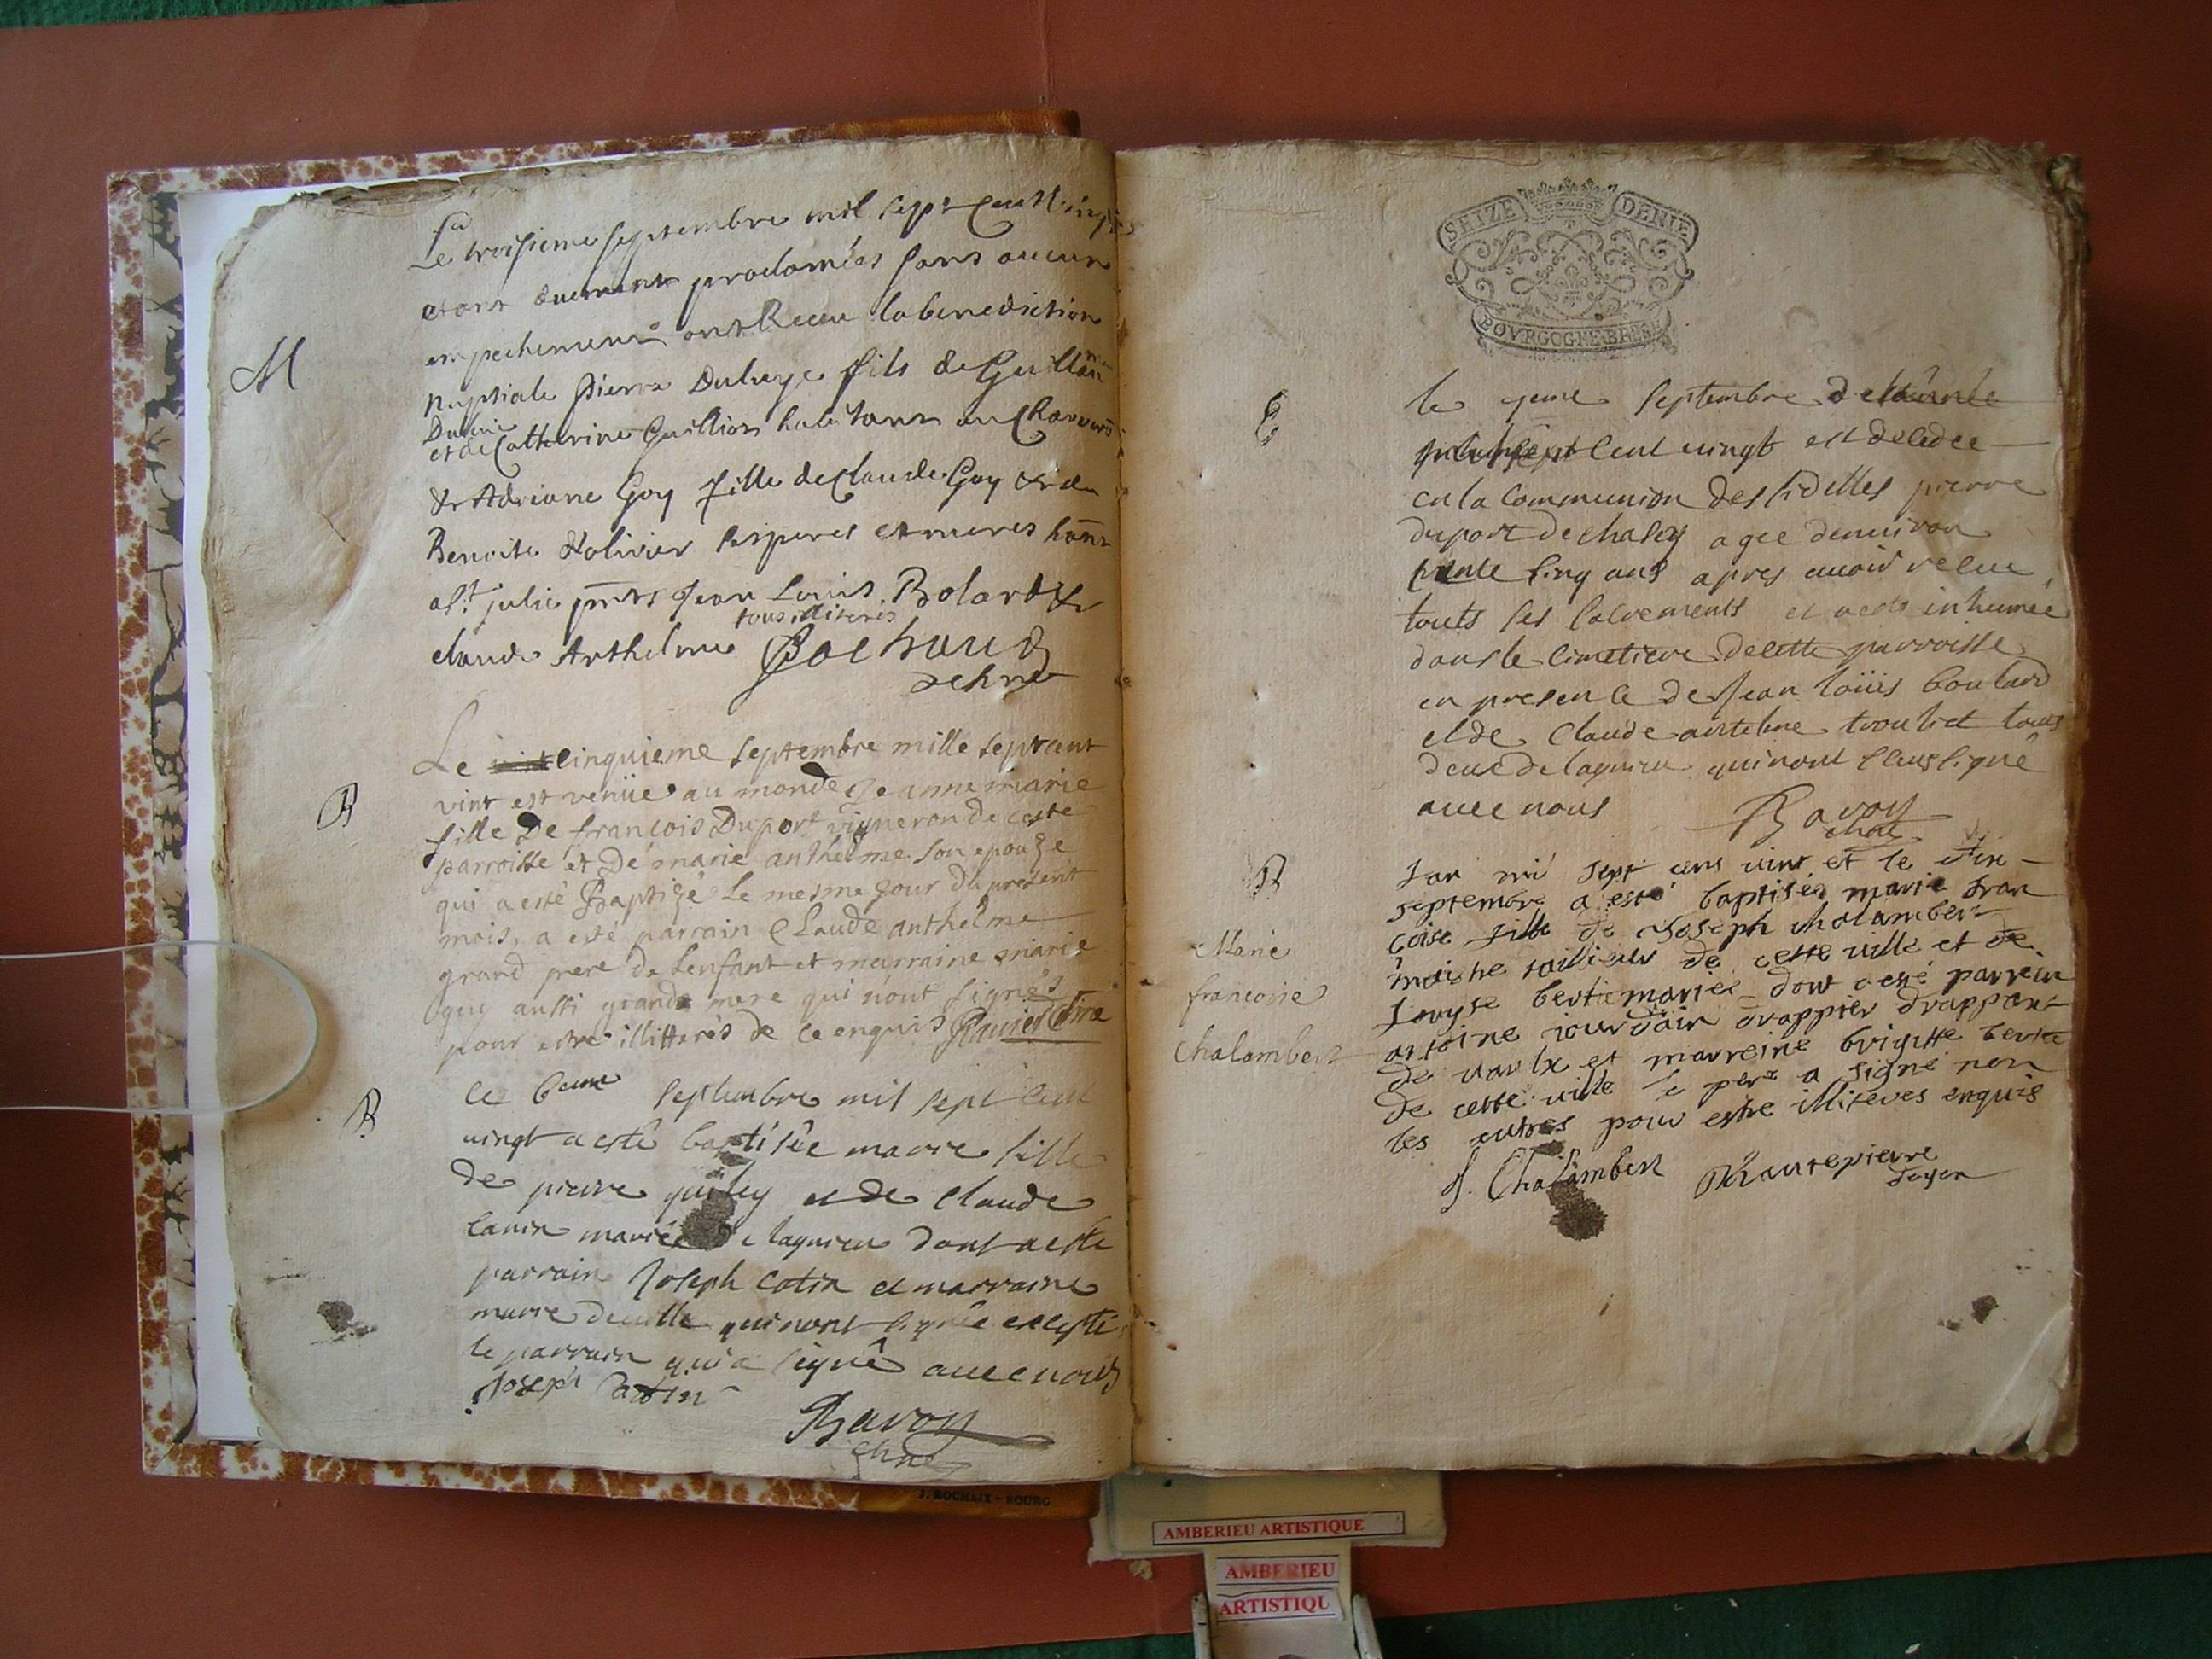 M
Le troisieme septembre mil sept cent vingt
etant duement proclamées sans aucun
empechement ont Receu la benediction
nuptiale pierre Duluye fils de Guillaume
et de Catherine Guillion habitans
& Adriane Goy fille de Claude Goy & de
Benoite d'olivier ses peres et meres
a st julie Jean Louis Bolard &
tous illiteres
claude Anthelme Bochard
B
Le cinquieme septembre mille sept cent
vint est veniie au monde Jeanne marie
fille De françois Duport vigneron de ceste
parroisse et De marie anthelme son epouze
qui a esté Baptizé Le mesme jour du present
mois, a esté parrain Claude anthelme
grand pere de Lenfant et marraine marie
guy aussi grande mere qui n'ont signés
pour estre illitterés de ce enquis
B
Le 6eme septembre mil sept cent
vingt a estê baptisêe marie fille
de pierre et de claude
marié de lagnieu dont a esté
parrain Joseph Cotin et marraine
marie qui nont signée excepté
le parrain qui a signê avec nous
Joseph Catin
Bavoz
chne
SEIZE DENIE
BOVRGOGNE BRESSE
le 9eme septembre
cent vingt est decedee
en la Communion des fidelles pierre
duport de agee denuiron
trente cinq ans apres auoir receu
touts ses sacrements et a esté inhumée
dans le cimetiere de cette parroisse
en presence de Jean loüis boulard
et de Claude antelme troulict tous
deux de lagnieu qui nont sceus signé
avec nous Bavoz
chne
B
Marie
francoise
Chalambert
Lan mil sept cens vint et le
septembre a esté baptisée marie fran
çoise fille de Joseph chalambert
maistre de cette ville et de
Louyse bertie mariés dont a esté parrein
antoine jourdain drappier drappant
de vaulx et marreine brigitte bertie
de cette ville le pere a signé non
les autres pour estre illiteres enquis
J. Chalambert Hautepierre
J. ROCHAIX - BOURG
AMBERIEU ARTISTIQUE
AMBERIEU
ARTISTIQU